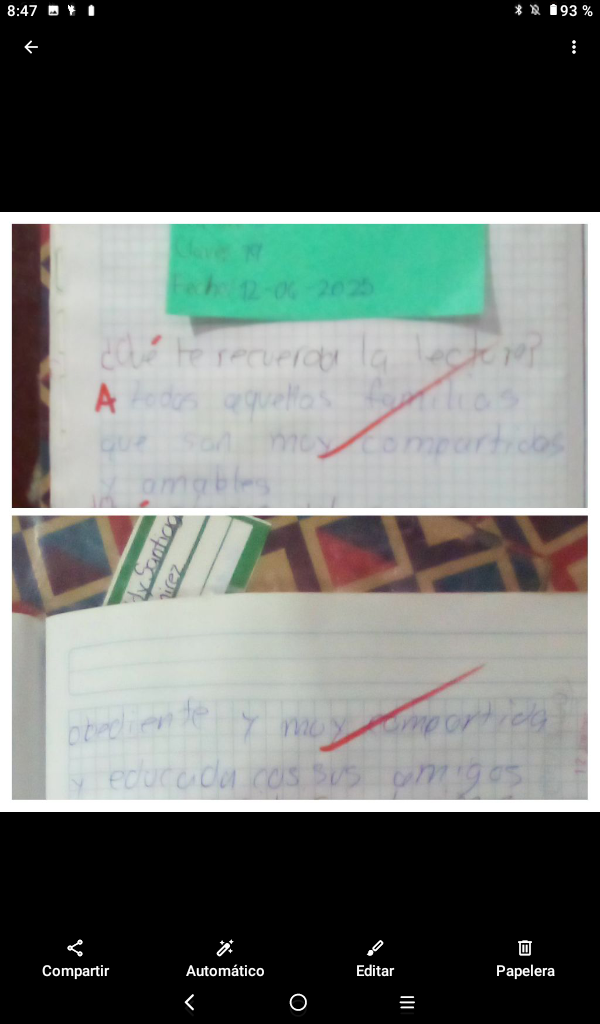 8:47
93 %
Clave: 19
Fecha: 12-06-2025
¿Qué te recuerda la lectura?
A todas aquellas familias
que son muy compartidas
y amables
Santiago
obediente y muy compartida
y educada cos sus amigos
Compartir
Automático
Editar
Papelera